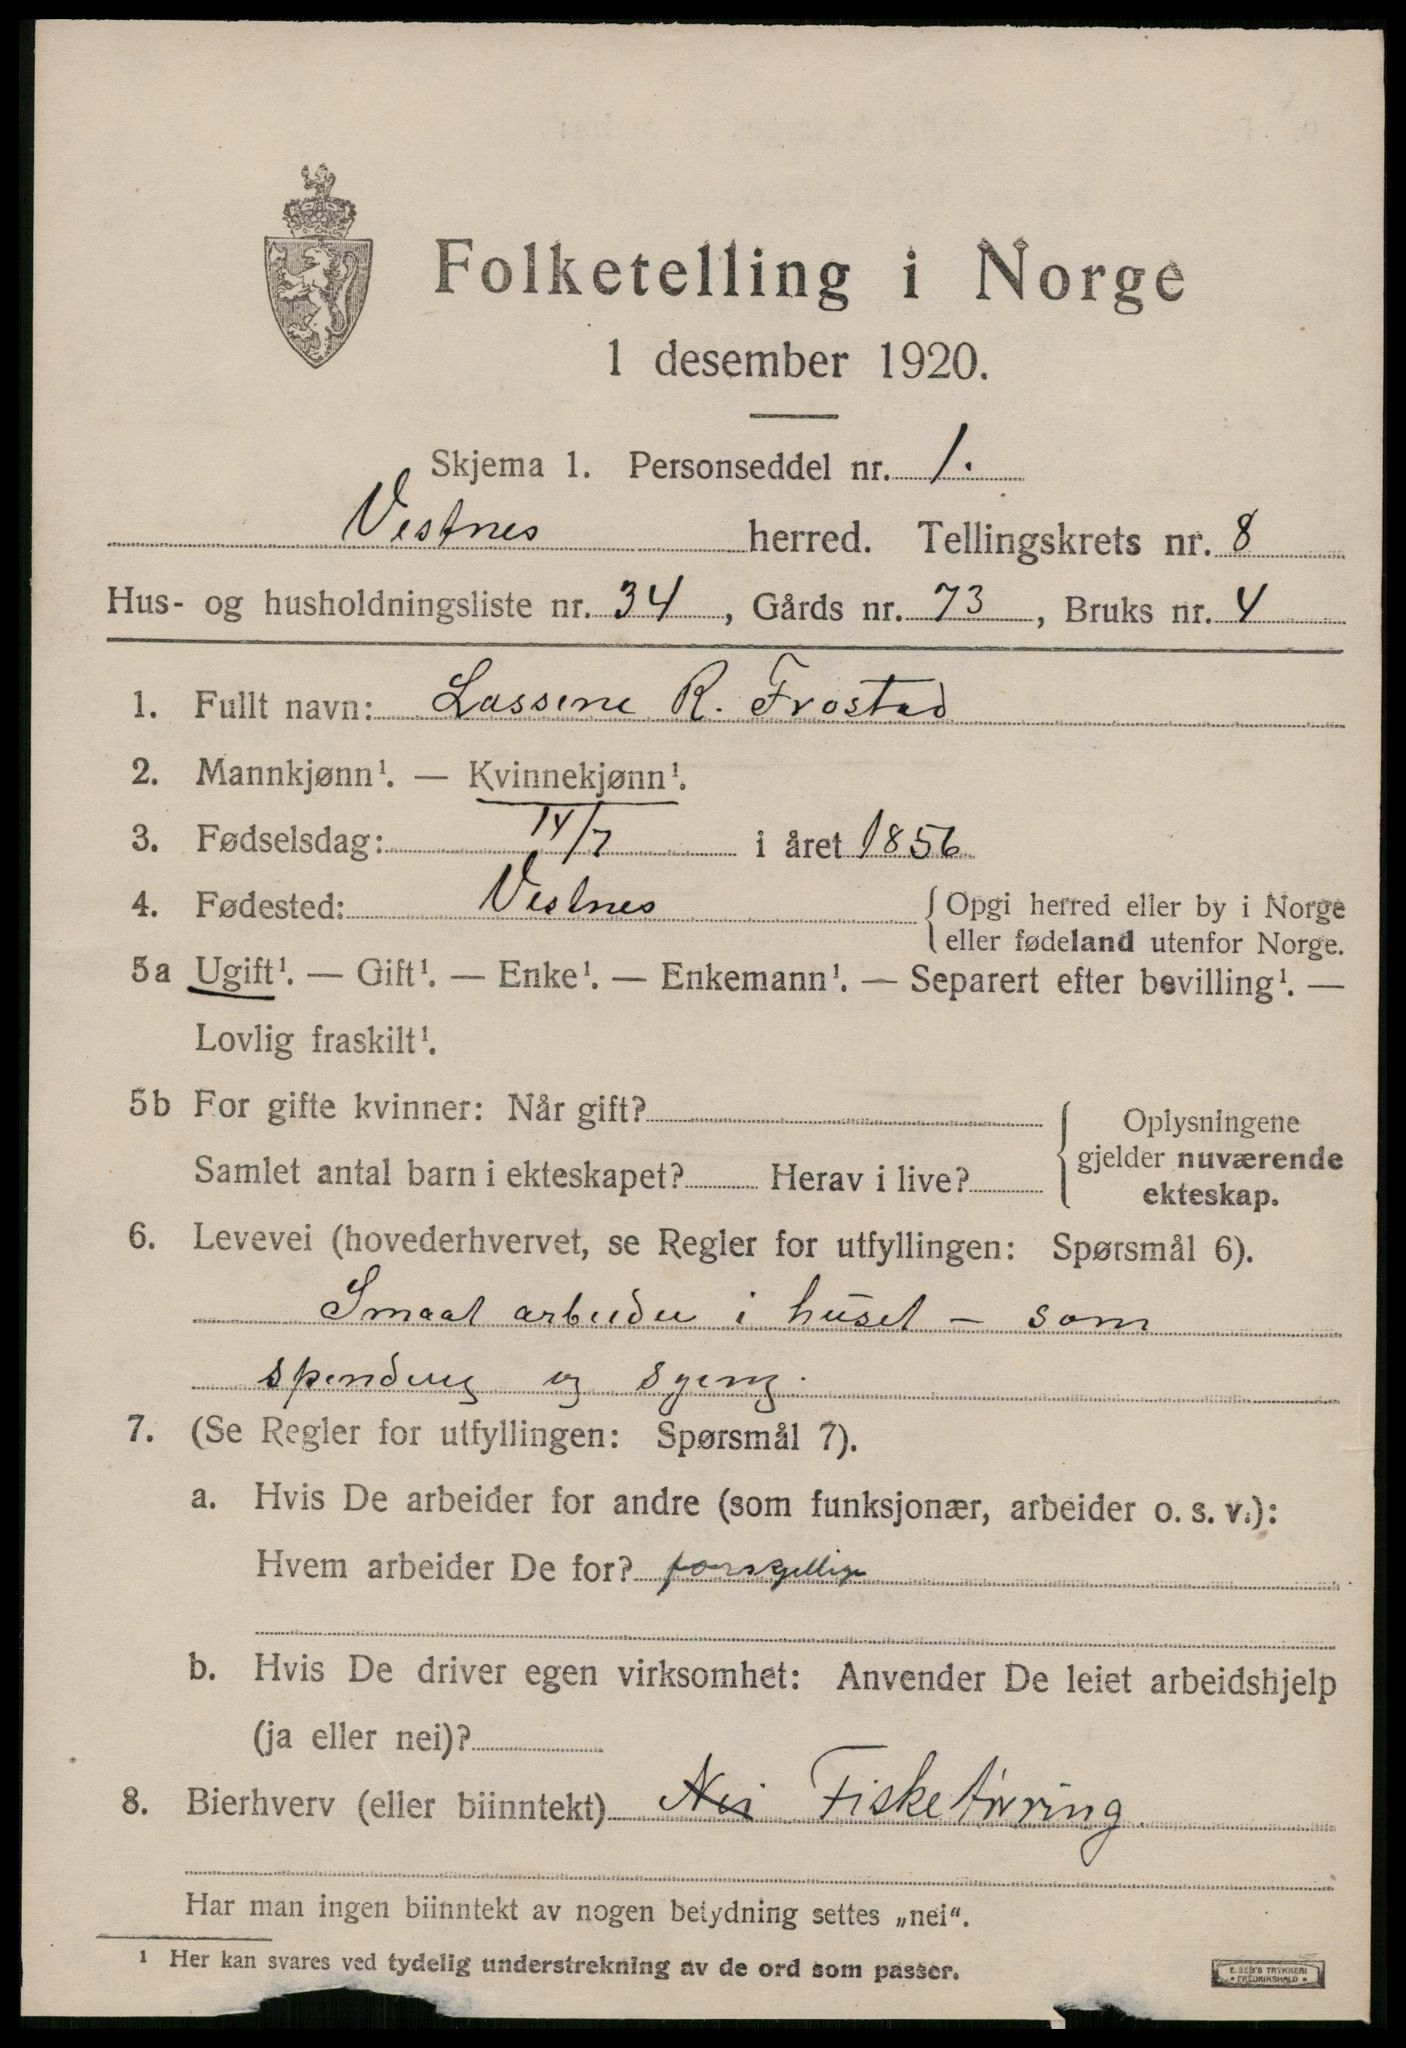 Folketelling i Norge
1 desember 1920.
Skjema 1. Personseddel nr. 1.
Vestnes herred. Tellingskrets nr. 8
Hus- og husholdningsliste nr. 34, Gårds nr. 73, Bruks nr. 4
1. Fullt navn: Lassine R. Frostad
2. Mannkjønn¹. — Kvinnekjønn¹.
3. Fødselsdag: 14/7 i året 1856
4. Fødested: Vestnes { Opgi herred eller by i Norge
eller fødeland utenfor Norge.
5a Ugift¹. — Gift¹. — Enke¹. — Enkemann¹. — Separert efter bevilling¹. —
Lovlig fraskilt¹.
5b For gifte kvinner: Når gift?
Samlet antal barn i ekteskapet? Herav i live?
{ Oplysningene
gjelder nuværende
ekteskap.
6. Levevei (hovederhvervet, se Regler for utfyllingen: Spørsmål 6).
Smaat arbeider i huset – som
spinding og sying.
7. (Se Regler for utfyllingen: Spørsmål 7).
a. Hvis De arbeider for andre (som funksjonær, arbeider o. s. v.):
Hvem arbeider De for? forskjellige
b. Hvis De driver egen virksomhet: Anvender De leiet arbeidshjelp
(ja eller nei)?
8. Bierhverv (eller biinntekt) Nei Fisketørring
Har man ingen biinntekt av nogen betydning settes „nei“.
¹ Her kan svares ved tydelig understrekning av de ord som passer.
E. SEM'S TRYKKERI
• FREDRIKSHALD •